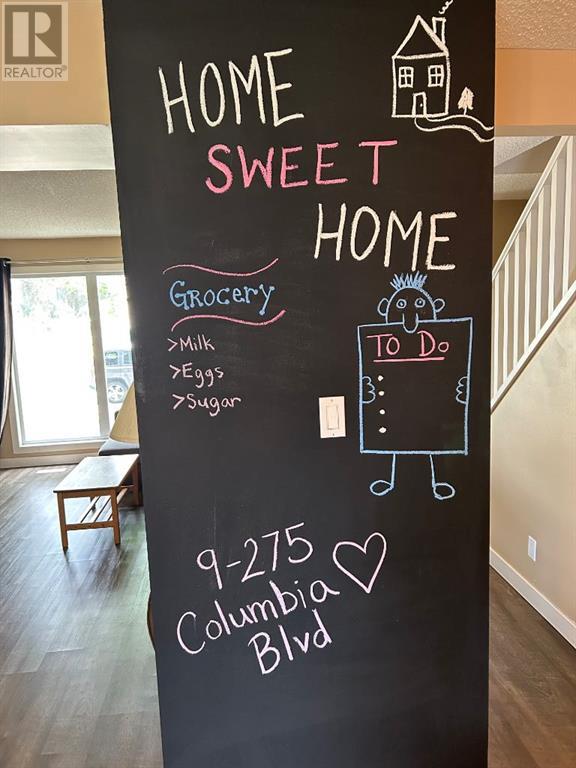 REALTOR®
HOME
SWEET
HOME
GROCERY
>Milk
>Eggs
>Sugar
TO DO
9-275
Columbia
Blvd